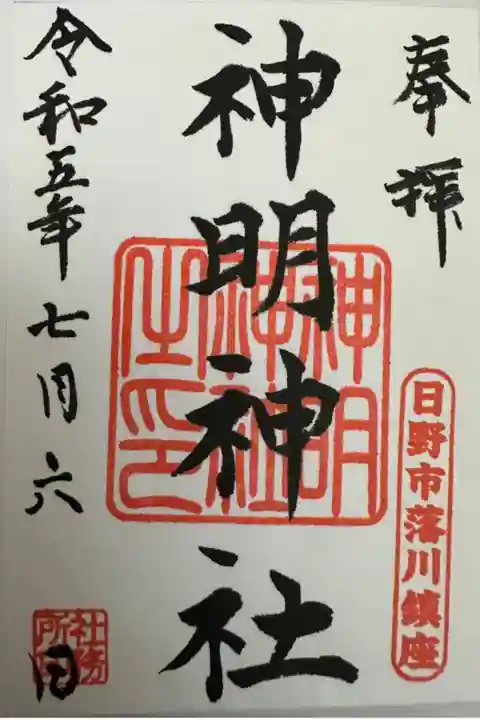 奉拝
日野市落川鎮座
神明神社
神明
神社
之印
令和五年七月六日
社務
所印